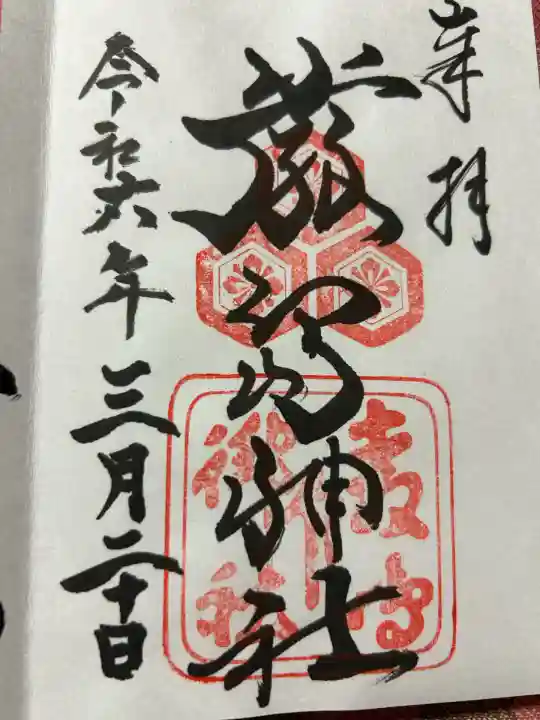 奉拝
厳島神社
令和六年三月二十日